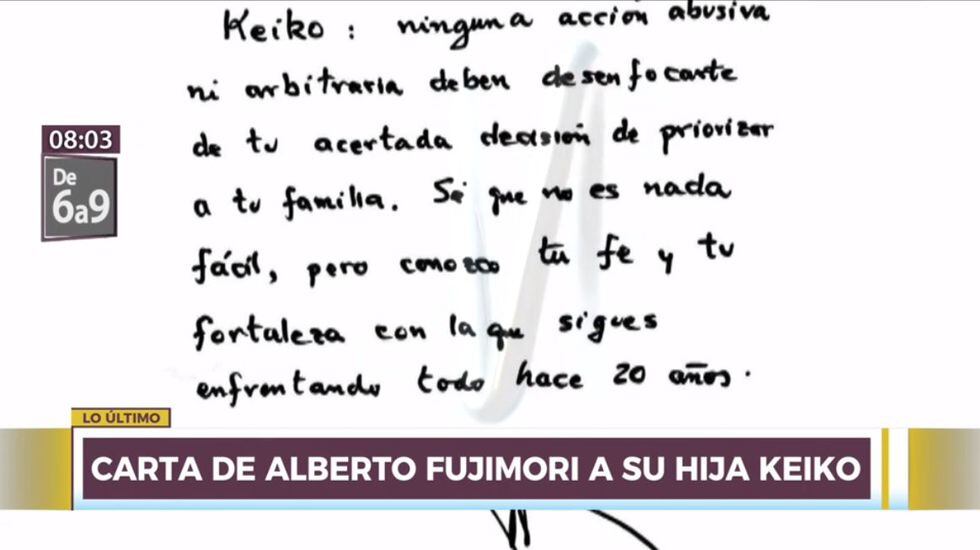 Keiko: ninguna acción abusiva
ni arbitraria deben desenfocarte
de tu acertada decisión de priorizar
a tu familia. Sé que no es nada
fácil, pero conozco tu fe y tu
fortaleza con la que sigues
enfrentando todo hace 20 años.
08:03
De
6a9
LO ÚLTIMO
CARTA DE ALBERTO FUJIMORI A SU HIJA KEIKO